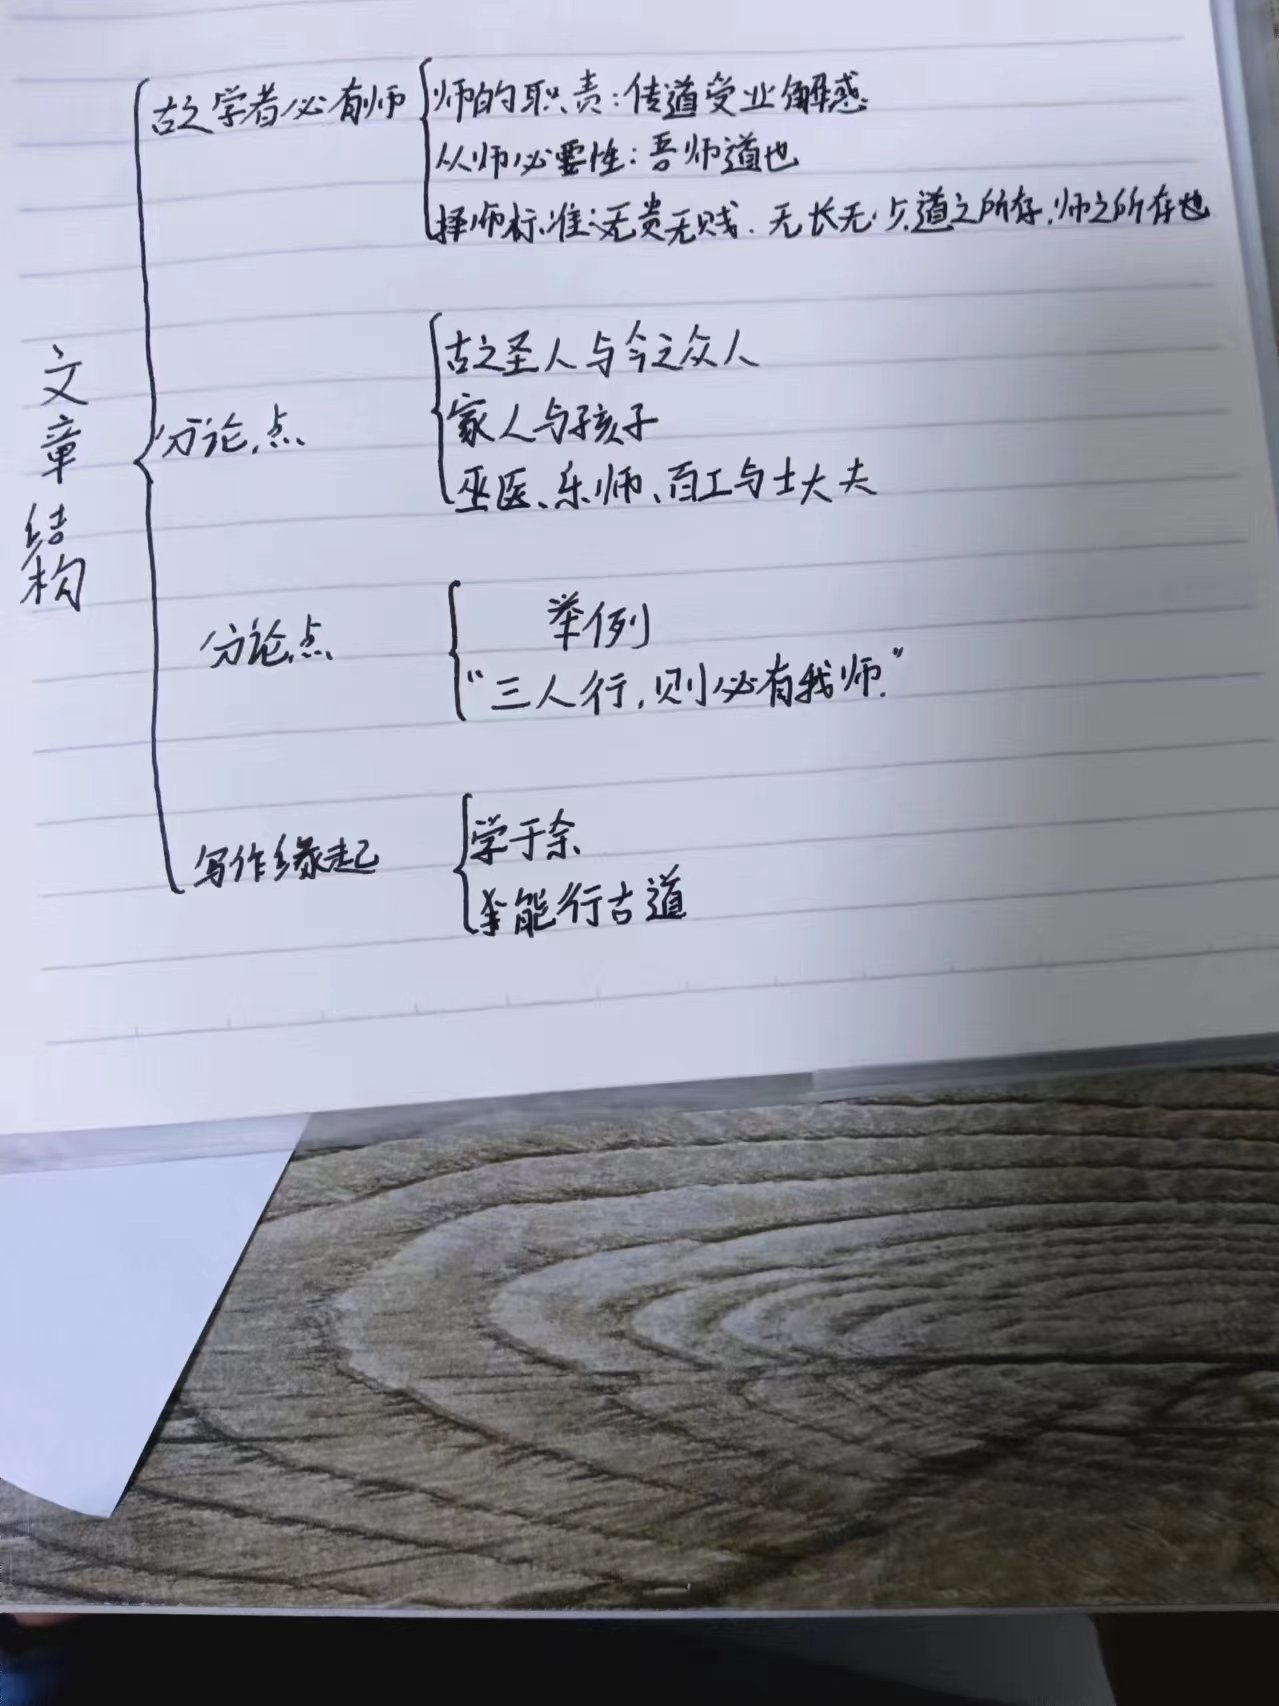 文章结构
古之学者必有师
师的职责：传道受业解惑
从师必要性：吾师道也
择师标准：无贵无贱．无长无少，道之所存，师之所存也
分论点
古之圣人与今之众人
家人与孩子
巫医、乐师、百工与士大夫
分论点
举例
“三人行，则必有我师．”
写作缘起
学于余
能行古道